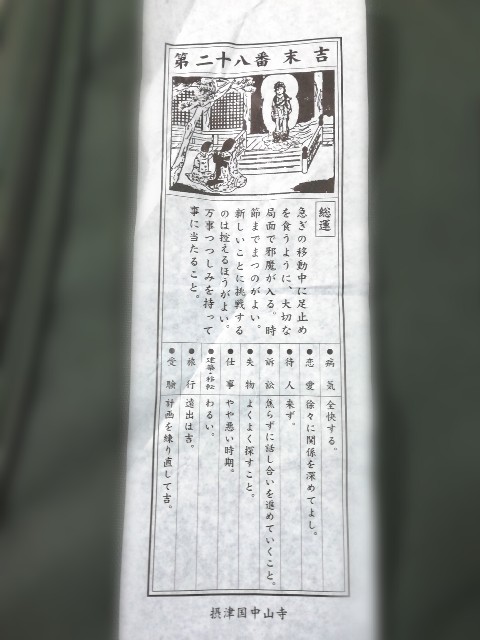 第二十八番 末吉
総運
急ぎの移動中に足止め
を食うように、大切な
局面で邪魔が入る。時
節までまつのがよい。
新しいことに挑戦する
のは控えるほうがよい。
万事つつしみを持って
事に当たること。
●病気 全快する。
●恋愛 徐々に関係を深めてよし。
●待人 来ず。
●訴訟 焦らずに話し合いを進めていくこと。
●失物 よくよく探すこと。
●仕事 やや悪い時期。
●建築・移転 わるい。
●旅行 遠出は吉。
●受験 計画を練り直して吉。
摂津国中山寺